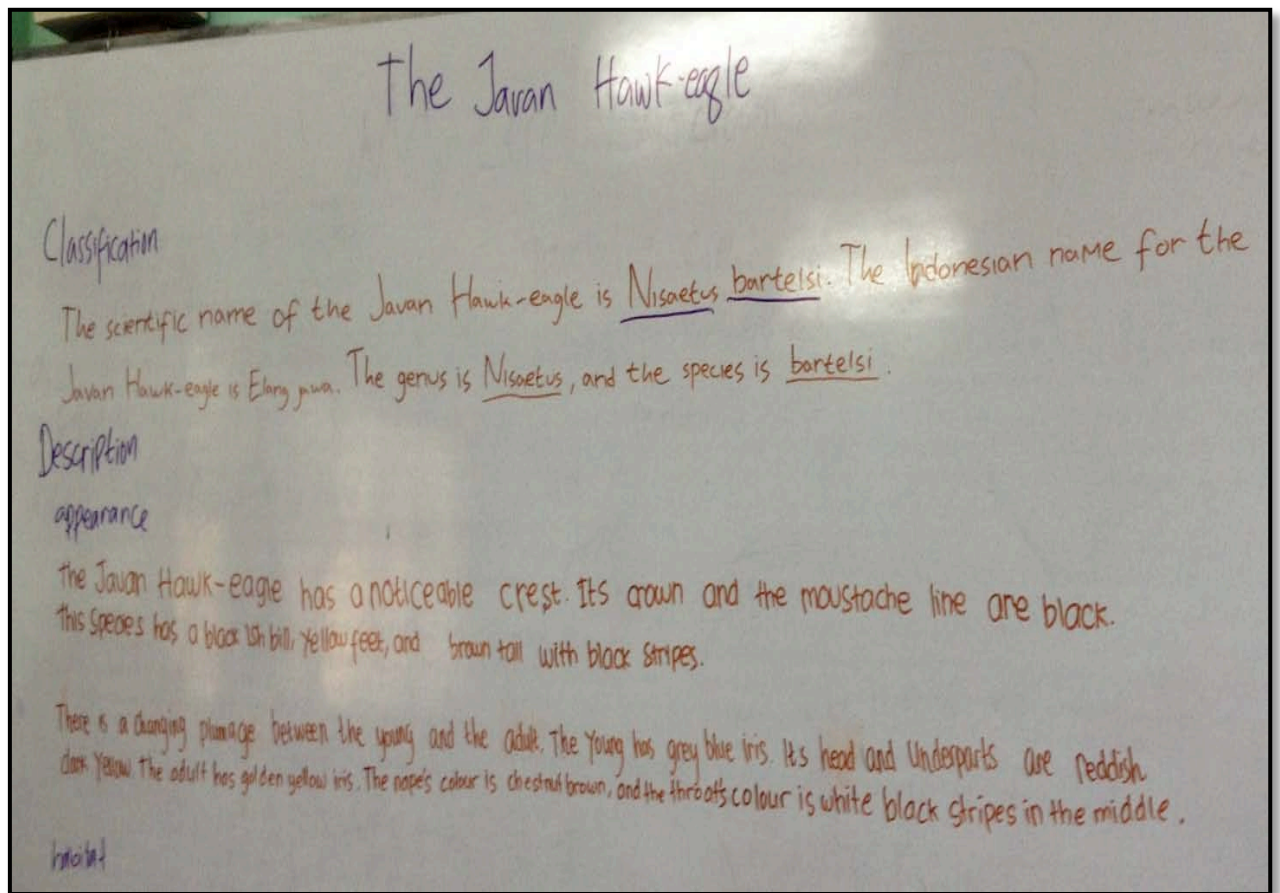 The Javan Hawk-eagle
Classification
The scientific name of the Javan Hawk-eagle is Nisaetus bartelsi. The Indonesian name for the
Javan Hawk-eagle is Elang jawa. The genus is Nisaetus, and the species is bartelsi.
Description
appearance
The Javan Hawk-eagle has a noticeable crest. Its crown and the moustache line are black.
This species has a black ish bill, yellow feet, and brown tail with black stripes.
There is a changing plumage between the young and the adult. The young has grey blue iris. Its head and Underparts are reddish
dark yellow. The adult has golden yellow iris. The nape's colour is chestnut brown, and the throat's colour is white black stripes in the middle.
habitat